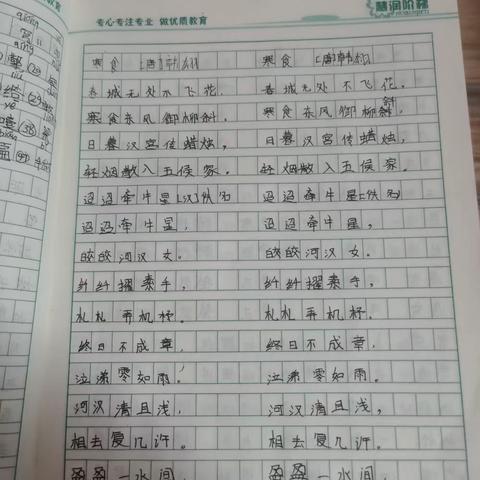 专心专注专业 做优质教育
慧润阶梯
寒食 [唐]韩翃 寒食 [唐]韩翃
春城无处不飞花, 春城无处不飞花,
寒食东风御柳斜。 寒食东风御柳斜。
日暮汉宫传蜡烛, 日暮汉宫传蜡烛,
轻烟散入五侯家。 轻烟散入五侯家。
迢迢牵牛星[汉]佚名 迢迢牵牛星[佚名]
迢迢牵牛星, 迢迢牵牛星,
皎皎河汉女。 皎皎河汉女。
纤纤擢素手, 纤纤擢素手,
札札弄机杼。 札札弄机杼。
终日不成章, 终日不成章,
泣涕零如雨。 泣涕零如雨。
河汉清且浅, 河汉清且浅,
相去复几许。 相去复几许。
盈盈一水间, 盈盈一水间,